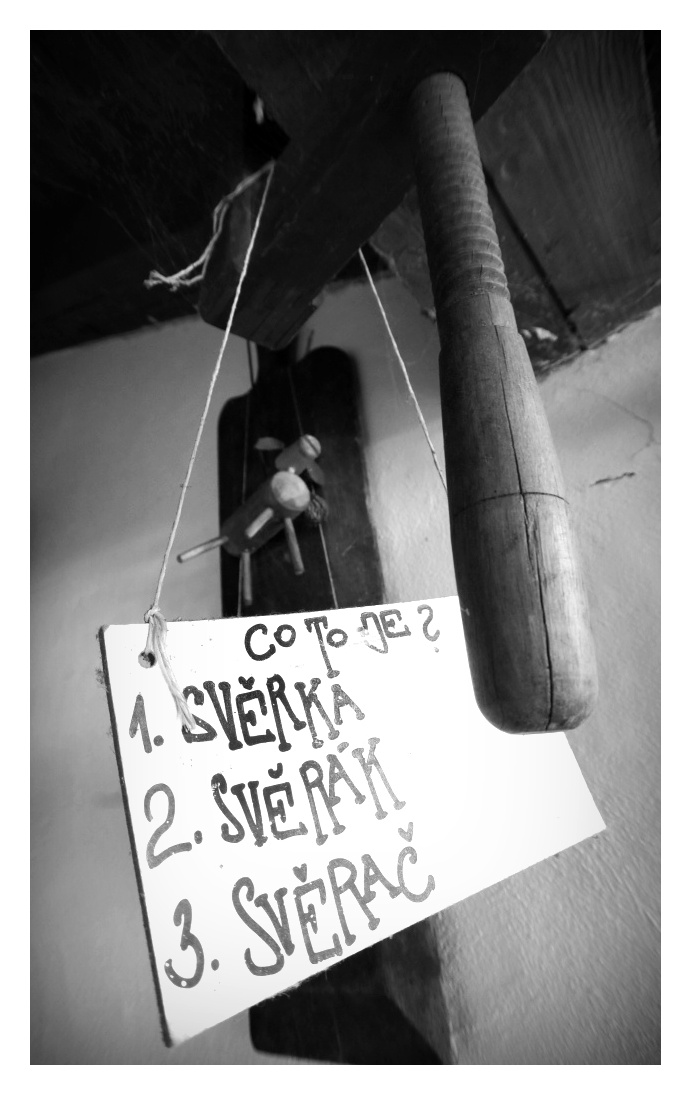 CO TO JE?
1. SVĚRKA
2. SVĚRÁK
3. SVĚRAČ